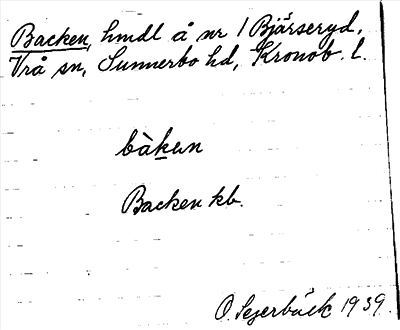 Backen, hmdl å nr 1 Bjärseryd,
Vrå sn, Sunnerbo hd, Kronob. l.
bàkun
Backen kb.
O. Sejerbäck 1939.